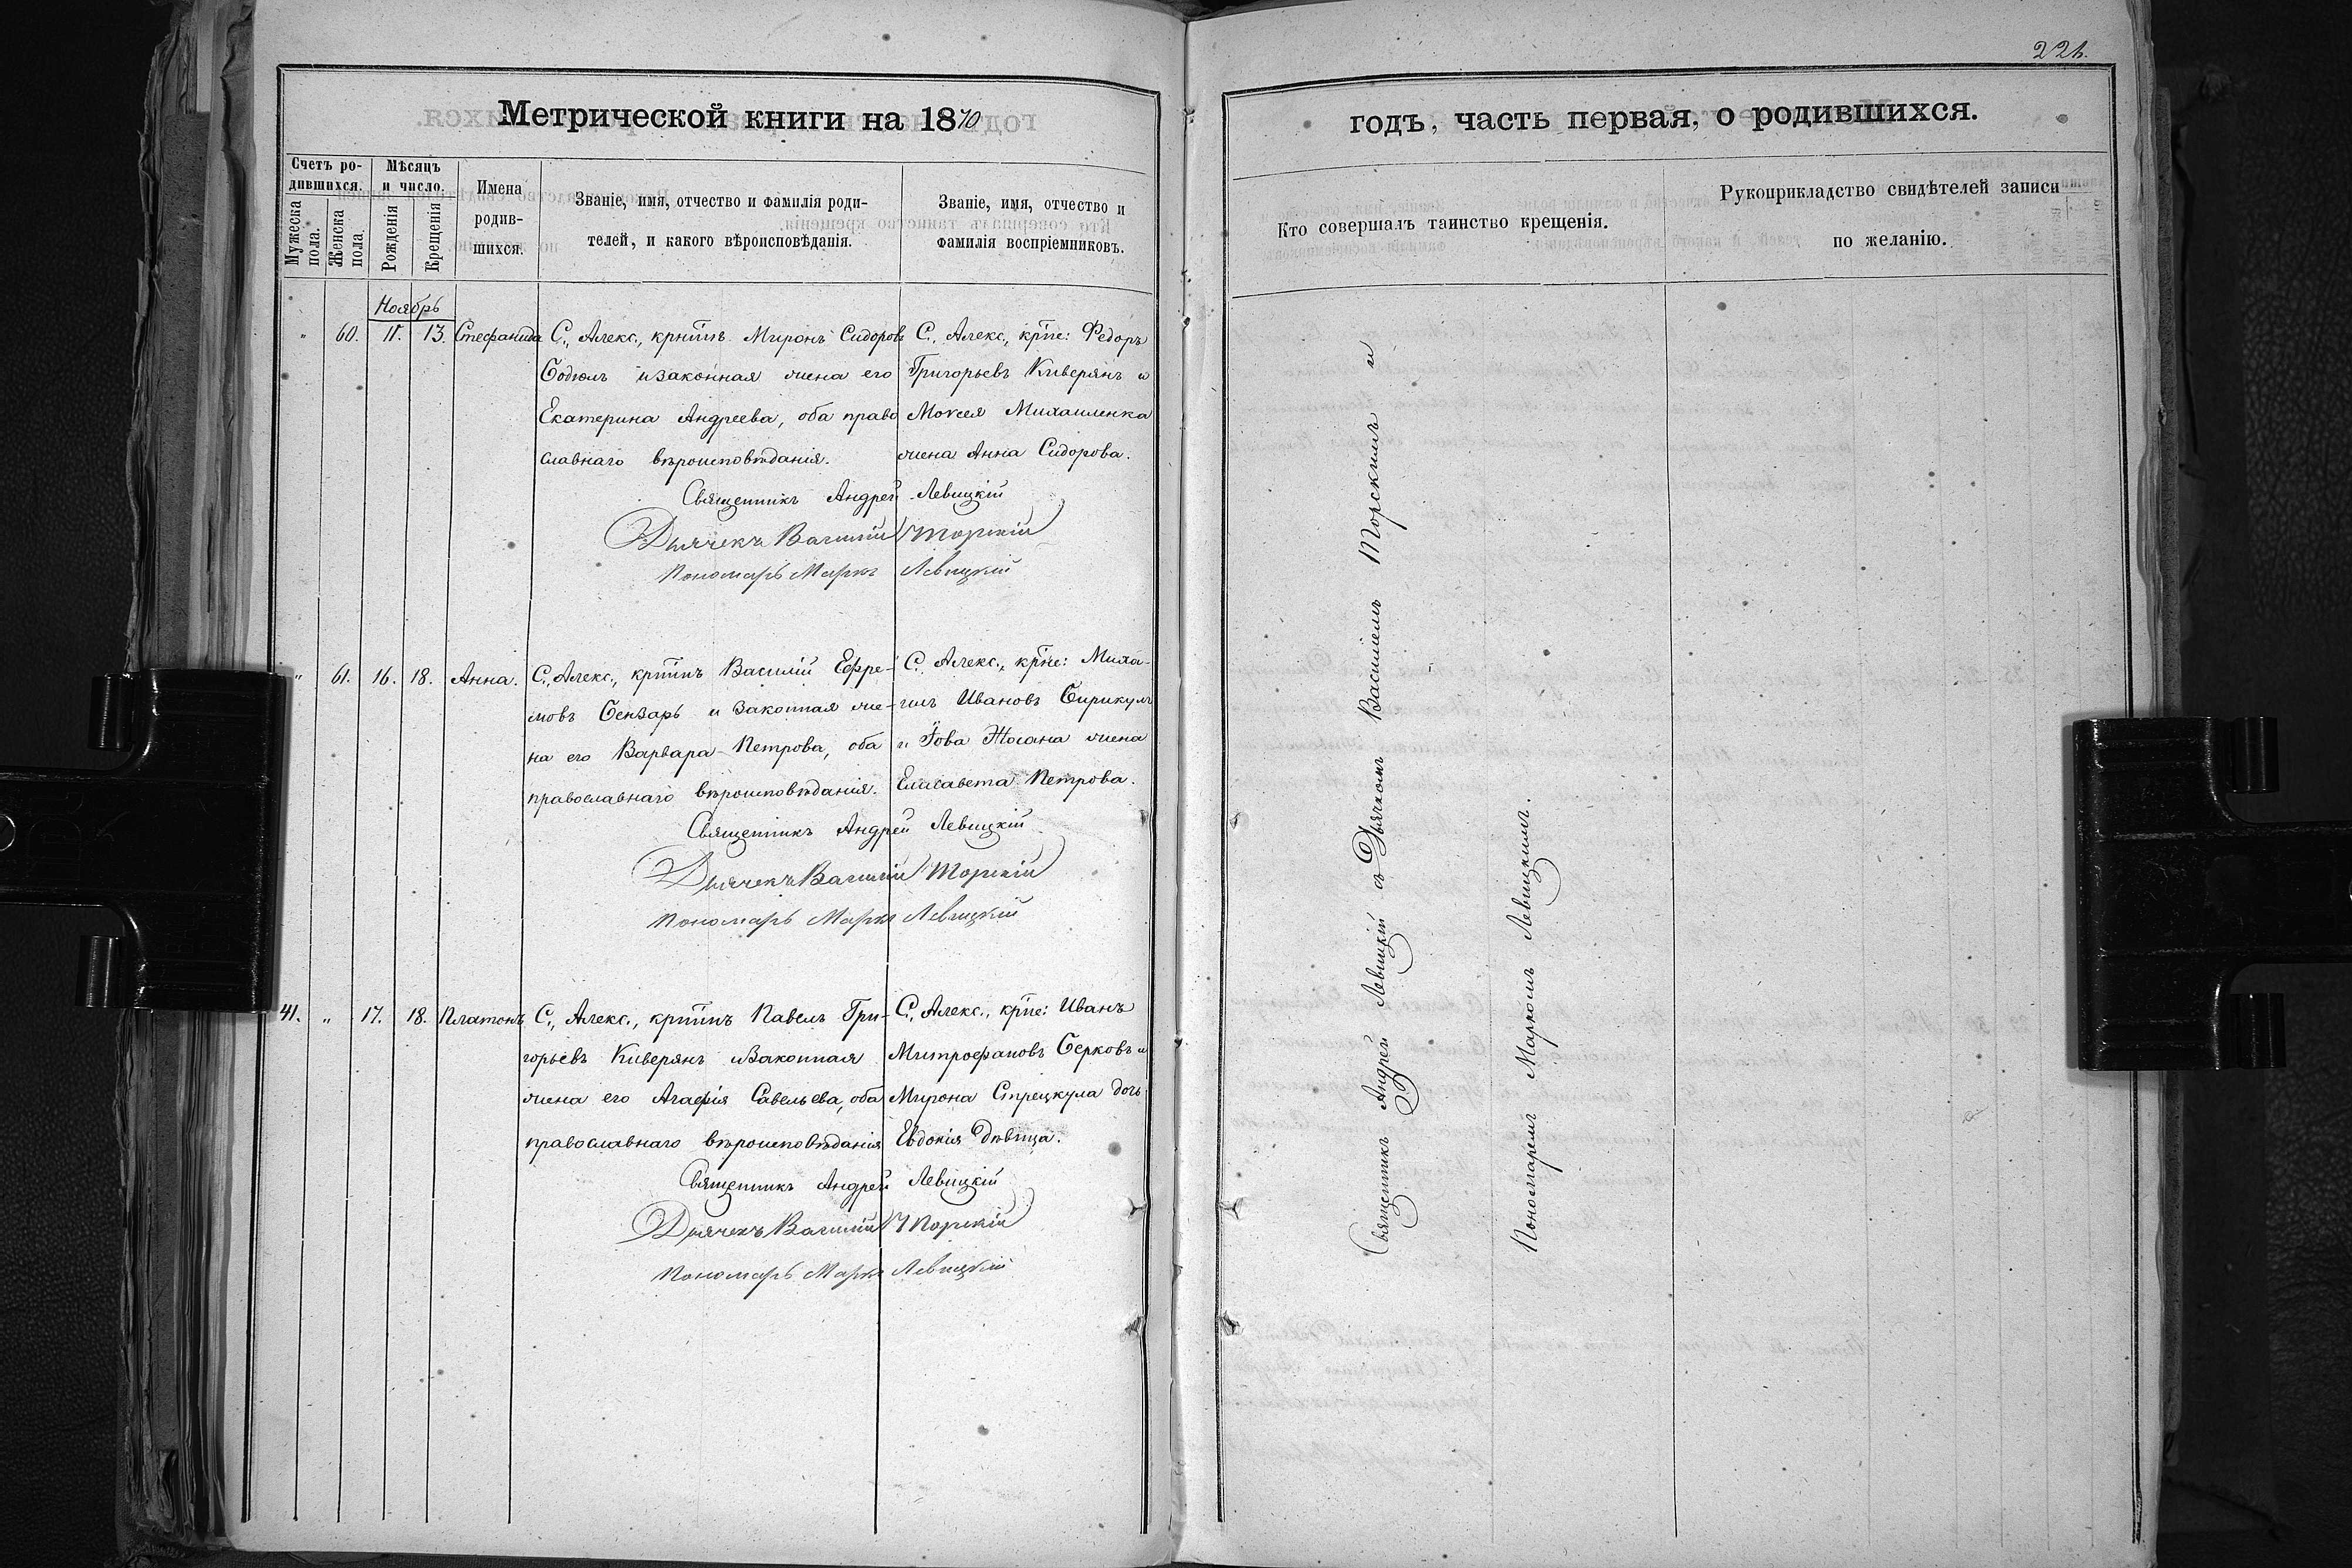 221.
Метрической книги на 1870
годъ, часть первая, о родившихся.
Счетъ ро-
дившихся.
Мѣсяцъ
и число.
Мужеска
пола.
Женска
пола.
Рожденія
Крещенія
Имена
родив-
шихся.
Званіе, имя, отчество и фамилія роди-
телей, и какого вѣроисповѣданія.
Званіе, имя, отчество и
фамилія воспріемниковъ.
Кто совершалъ таинство крещенія.
Рукоприкладство свидѣтелей записи
по желанію.
Ноябрь
" 60. 11. 13. Стефанида С., Алекс., крнтинъ Миронъ Сидоровъ
и законная жена его
Екатерина Андреева, оба право
славнаго вѣроисповѣданія.
С., Алекс., крне: Федоръ
Григорьевъ Киверянъ и
Моисея Михаиленка
жена Анна Сидорова.
Священникъ Андрей Левицкій
Дьячекъ Василій Торскій
Пономарь Маркъ Левицкій
" 61. 16. 18. Анна. С., Алекс., кртинъ Василій Ефре-
мовъ Бензарь и законная же-
на его Варвара Петрова, оба
православнаго вѣроисповѣданія.
С. Алекс., крне: Миха-
илъ Ивановъ Бирикулъ
и Іова Жосана жена
Елисавета Петрова.
Священникъ Андрей Левицкій
Дьячекъ Василій Торскій
Пономарь Маркъ Левицкій
41. " 17. 18. Платонъ С., Алекс., кртинъ Павелъ Гри-
горьевъ Киверянъ и законная
жена его Агафія Савельева, оба
православнаго вѣроисповѣданія
С., Алекс., крне: Иванъ
Митрофановъ Серковъ и
Мирона Стрецкула дочь
Евдокія дѣвица.
Священникъ Андрей Левицкій
Дьячекъ Василій Торскій
Пономарь Маркъ Левицкій
Священникъ Андрей Левицкій съ Дьячкомъ Василіемъ Торскимъ и
Пономаремъ Маркомъ Левицкимъ.